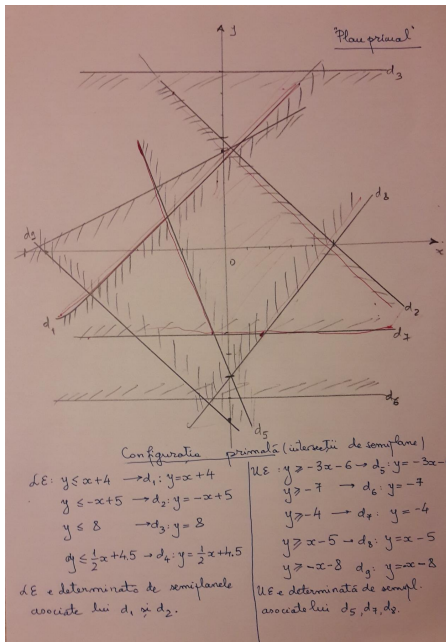 "Plan primal"
y
d₃
d₈
d₉
x
0
d₁
d₂
d₇
d₆
d₅
Configurația primală (intersecții de semiplane)
LE: y ≤ x+4 → d₁: y = x+4
y ≤ -x+5 → d₂: y = -x+5
y ≤ 8 → d₃: y = 8
y ≤ ½x+4.5 → d₄: y = ½x+4.5
LE e determinată de semiplanele
asociate lui d₁ și d₂.
UE: y ≥ -3x-6 → d₅: y = -3x-
y ≥ -7 → d₆: y = -7
y ≥ -4 → d₇: y = -4
y ≥ x-5 → d₈: y = x-5
y ≥ -x-8 d₉: y = -x-8
UE e determinată de sempl.
asociate lui d₅, d₇, d₈.